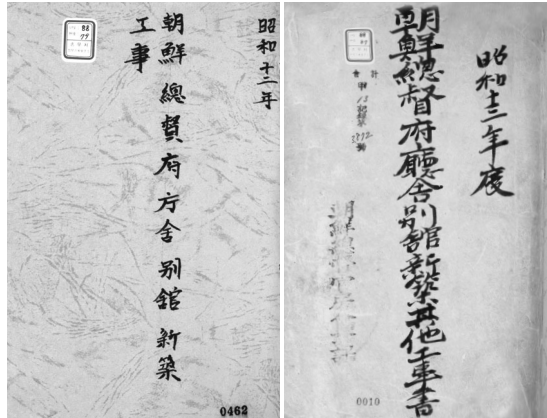 昭和十二年
朝鮮總督府庁舍別館新築
工事
88
77
0462
昭和十三年度
朝鮮總督府廳舍別館新築其他工事書
會計
0010